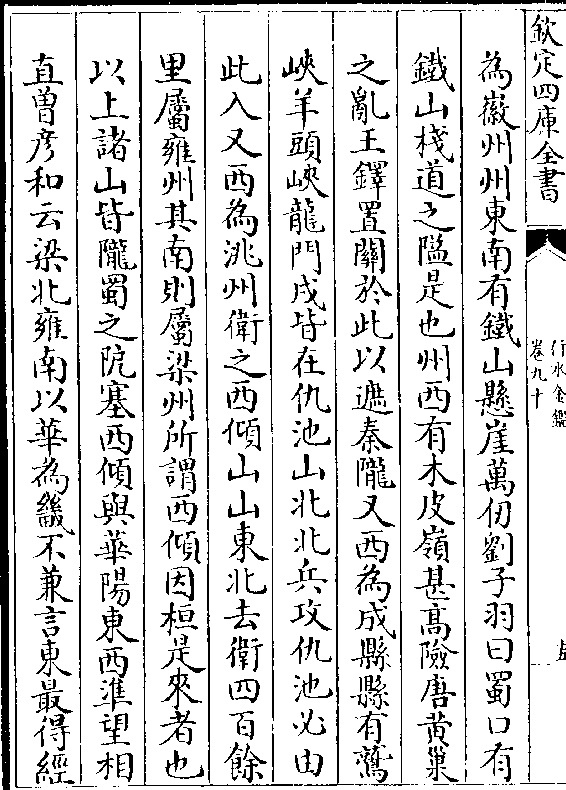 欽定四庫全書
行水金鑑
卷九十
為徽州州東南有鐵山懸崖萬仞劉子羽曰蜀口有
鐵山棧道之隘是也州西有木皮嶺甚髙險唐黄巢
之亂王鐸置關於此以遮秦隴又西為成縣縣有鷲
峽羊頭峽龍門戍皆在仇池山北北兵攻仇池必由
此入又西為洮州衛之西傾山山東北去衛四百餘
里屬雍州其南則屬梁州所謂西傾因桓是來者也
以上諸山皆隴蜀之阨塞西傾與華陽東西準望相
直曽彦和云梁北雍南以華為畿不兼言東最得經